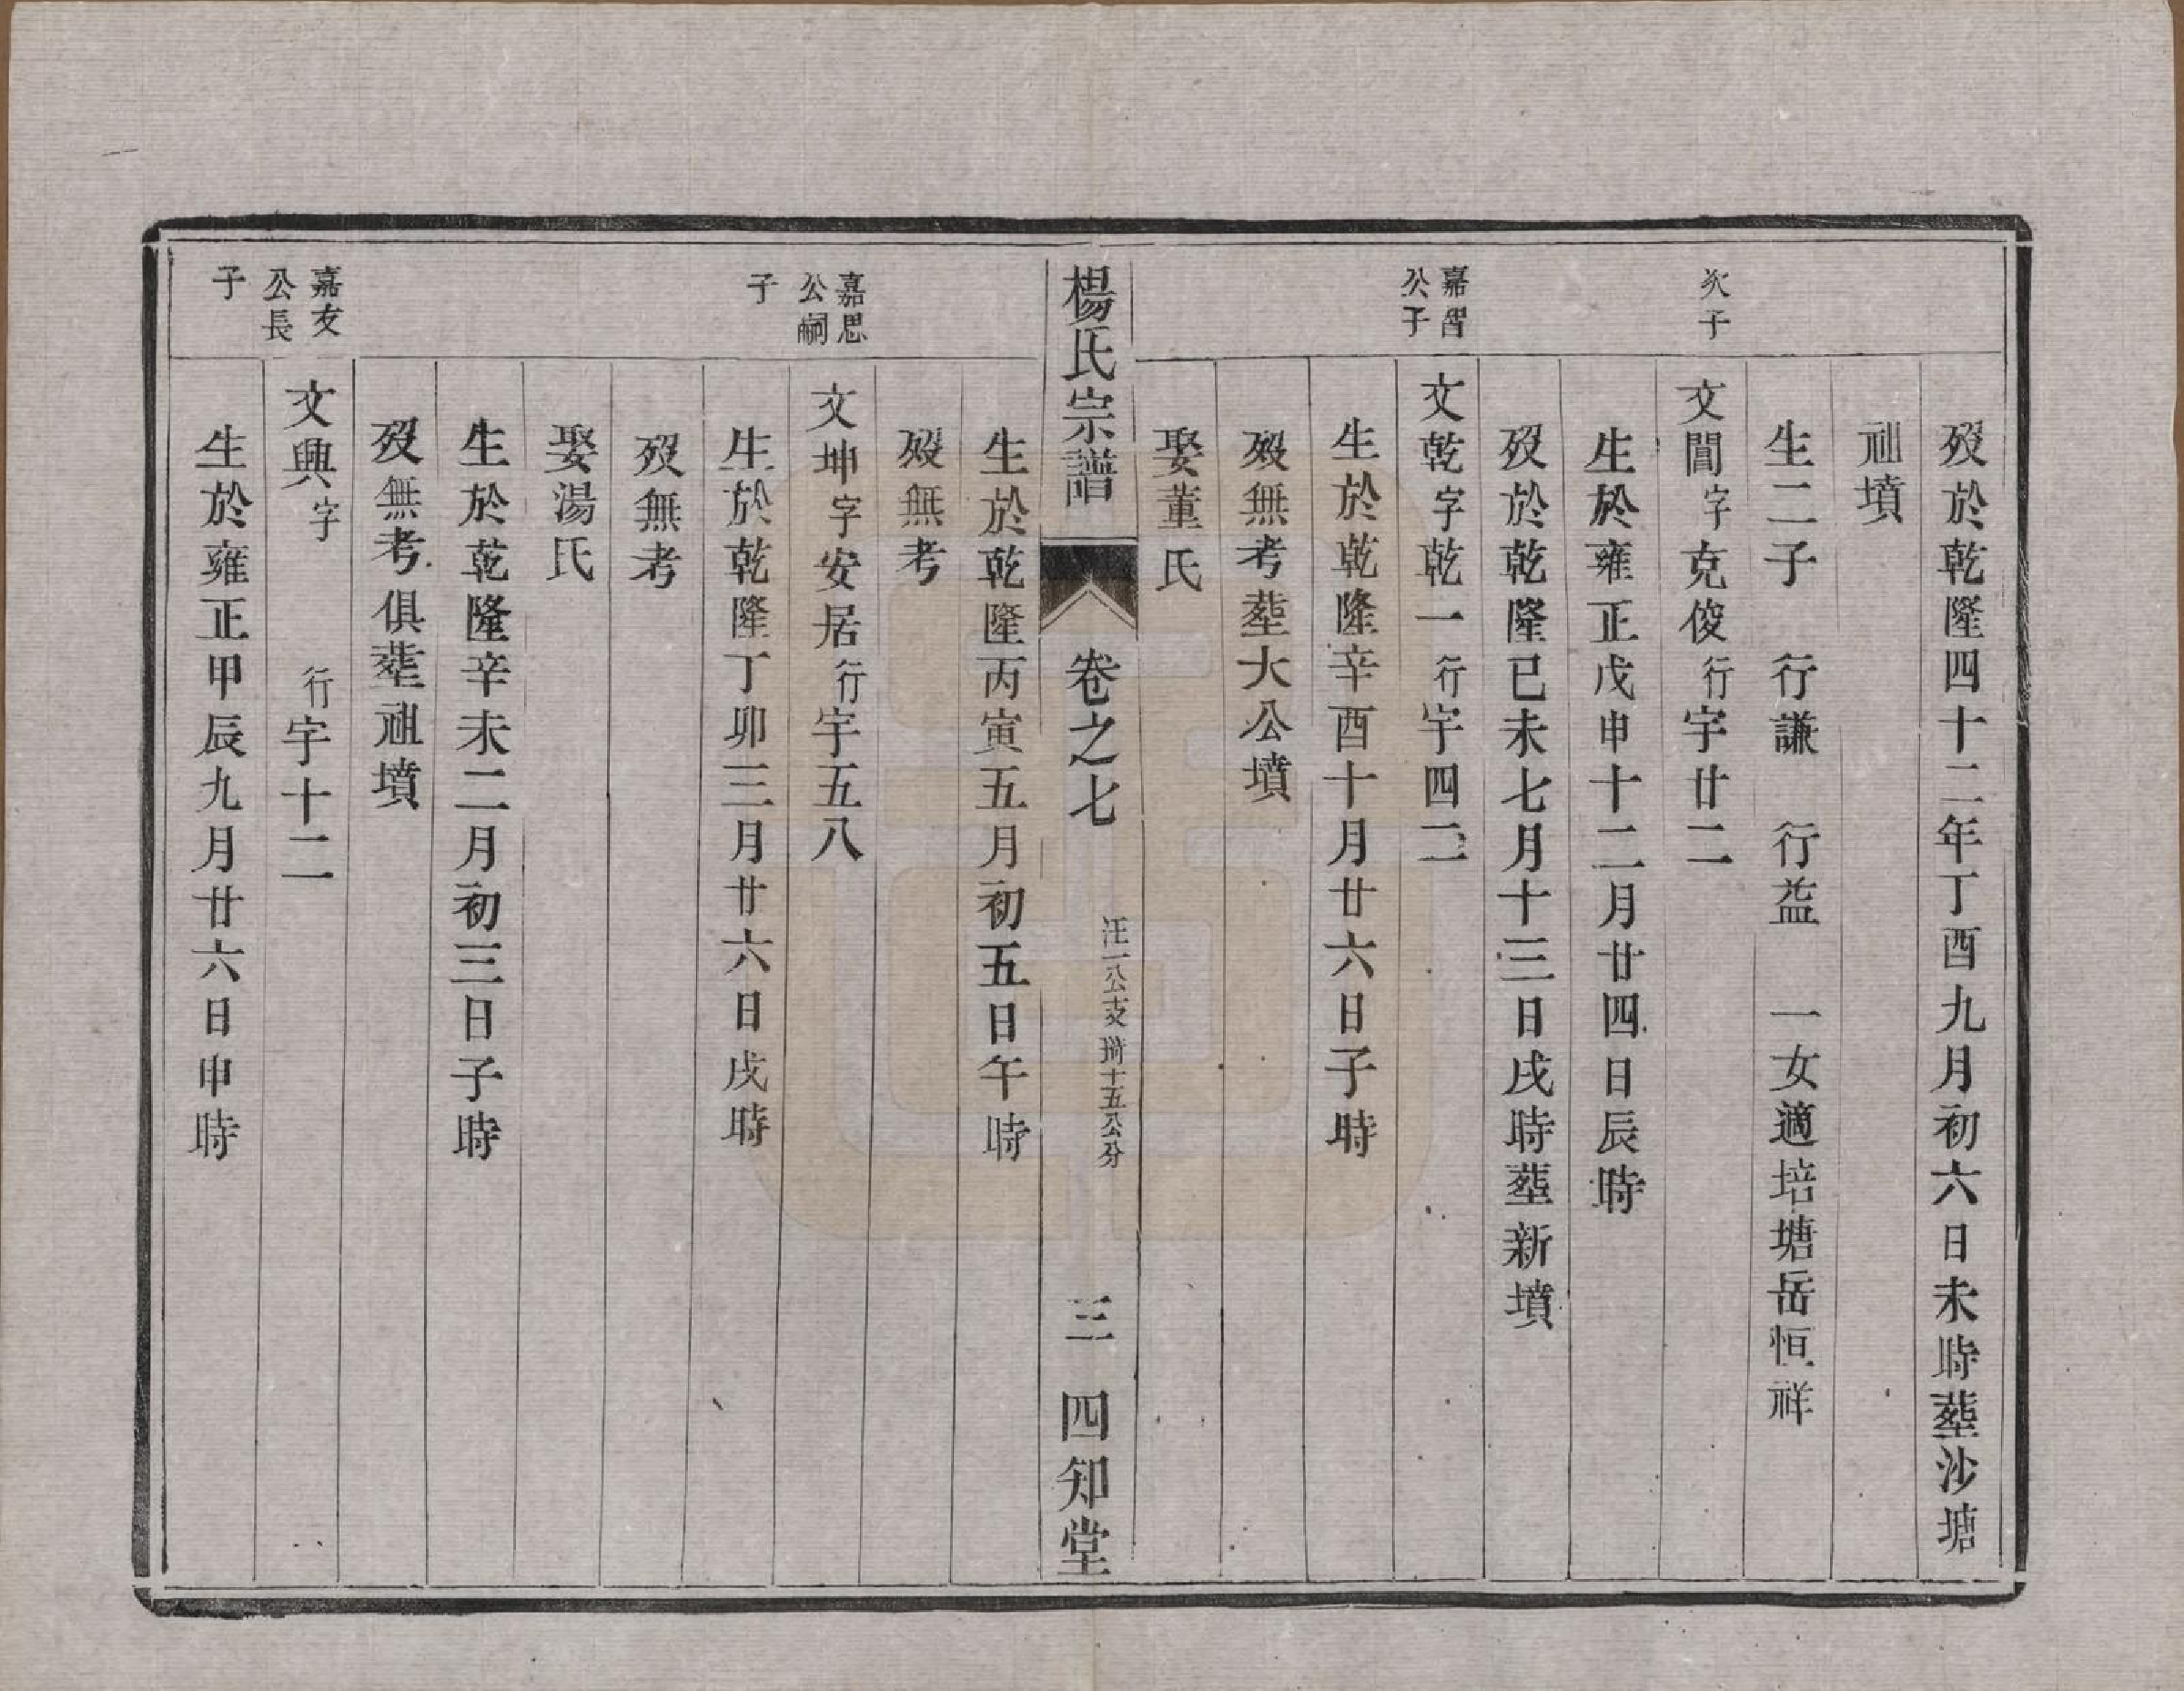 歿於乾隆四十二年丁酉九月初六日未時塟沙塘
祖墳
生二子　行謙　行益　一女適培塘岳恒祥
次子
文閶字克俊行宇廿二
生於雍正戊申十二月廿四日辰時
歿於乾隆已未七月十三日戌時塟新墳
嘉習
公子
文乾字乾一行宇四二
生於乾隆辛酉十月廿六日子時
歿無考塟大公墳
娶董氏
楊氏宗譜　卷之七　汪一公支　十五公分　三　四知堂
生於乾隆丙寅五月初五日午時
歿無考
嘉思
公嗣
子
文坤字安居行宇五八
生於乾隆丁卯三月廿六日戌時
歿無考
娶湯氏
生於乾隆辛未二月初三日子時
歿無考俱塟祖墳
嘉友
公長
子
文興字　行宇十二
生於雍正甲辰九月廿六日申時